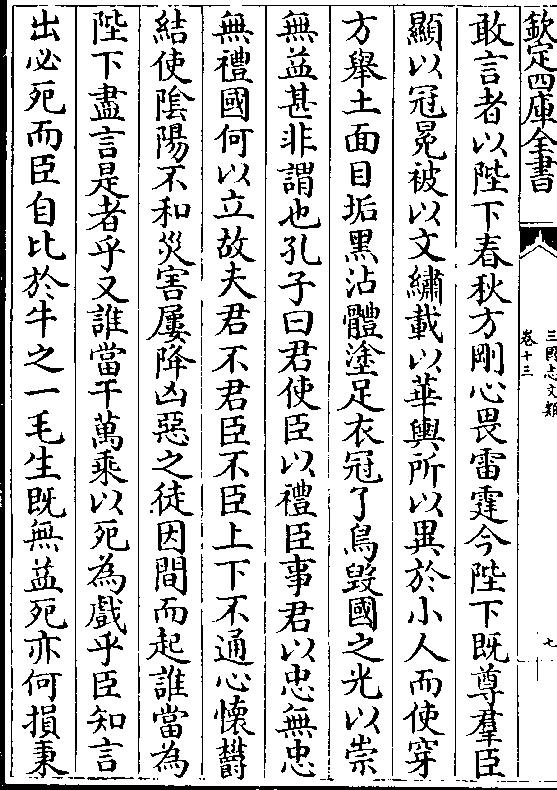 欽定四庫全書
三國志文類
卷十三
七
敢言者以陛下春秋方剛心畏雷霆今陛下既尊羣臣
顯以冠冕被以文繡載以華輿所以異於小人而使穿
方舉土面目垢黑沾體塗足衣冠了鳥毀國之光以崇
無益甚非謂也孔子曰君使臣以禮臣事君以忠無忠
無禮國何以立故夫君不君臣不臣上下不通心懷鬱
結使陰陽不和災害屢降凶惡之徒因間而起誰當為
陛下盡言是者乎又誰當干萬乘以死為戲乎臣知言
出必死而臣自比於牛之一毛生既無益死亦何損秉